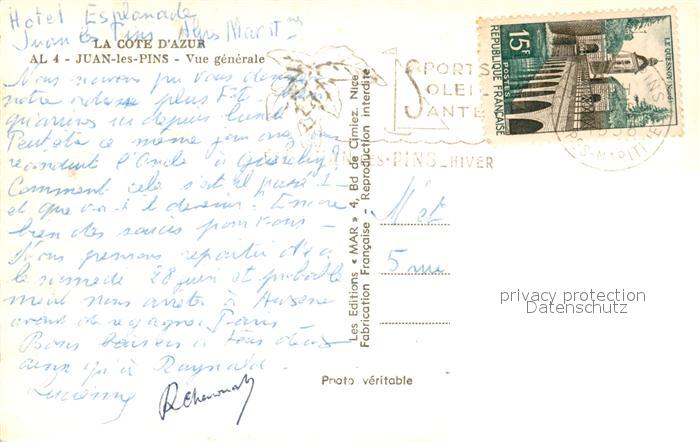 Hotel Esplanade
Juan les Pins Alpes Marit mes
LA COTE D'AZUR
AL 4 - JUAN-les-PINS - Vue générale
Nous n'avons pu vous donner
notre adresse plus tôt
qu'arrivés ici depuis lundi
Peut-être ce même jour avez vous
reconduit l'oncle à
Comment cela s'est-il passé ?
et que va-t-il devenir. Encore
bien des soucis pour vous -
Nous pensons repartir d'ici
le samedi 28 juin et probable
ment nous arrêter à Auxerre
avant de regagner Paris
Bons baisers à tous deux
ainsi qu'à Raynald.
Lucienne
Les Editions « MAR » 4, Bd de Cimiez, Nice
Fabrication Française - Reproduction interdite
SPORTS
SOLEIL
SANTÉ
PINS_HIVER
15F
POSTES
REPUBLIQUE FRANÇAISE
LE QUESNOY (Nord)
M et
5 rue
privacy protection
Datenschutz
Photo véritable